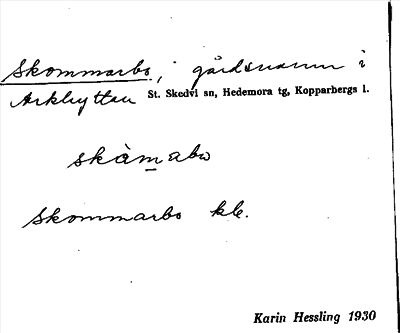 Skommarbo, gårdsnamn i
Arkhyttan St. Skedvi sn, Hedemora tg, Kopparbergs l.
skàmabω
Skommarbo kle.
Karin Hessling 1930